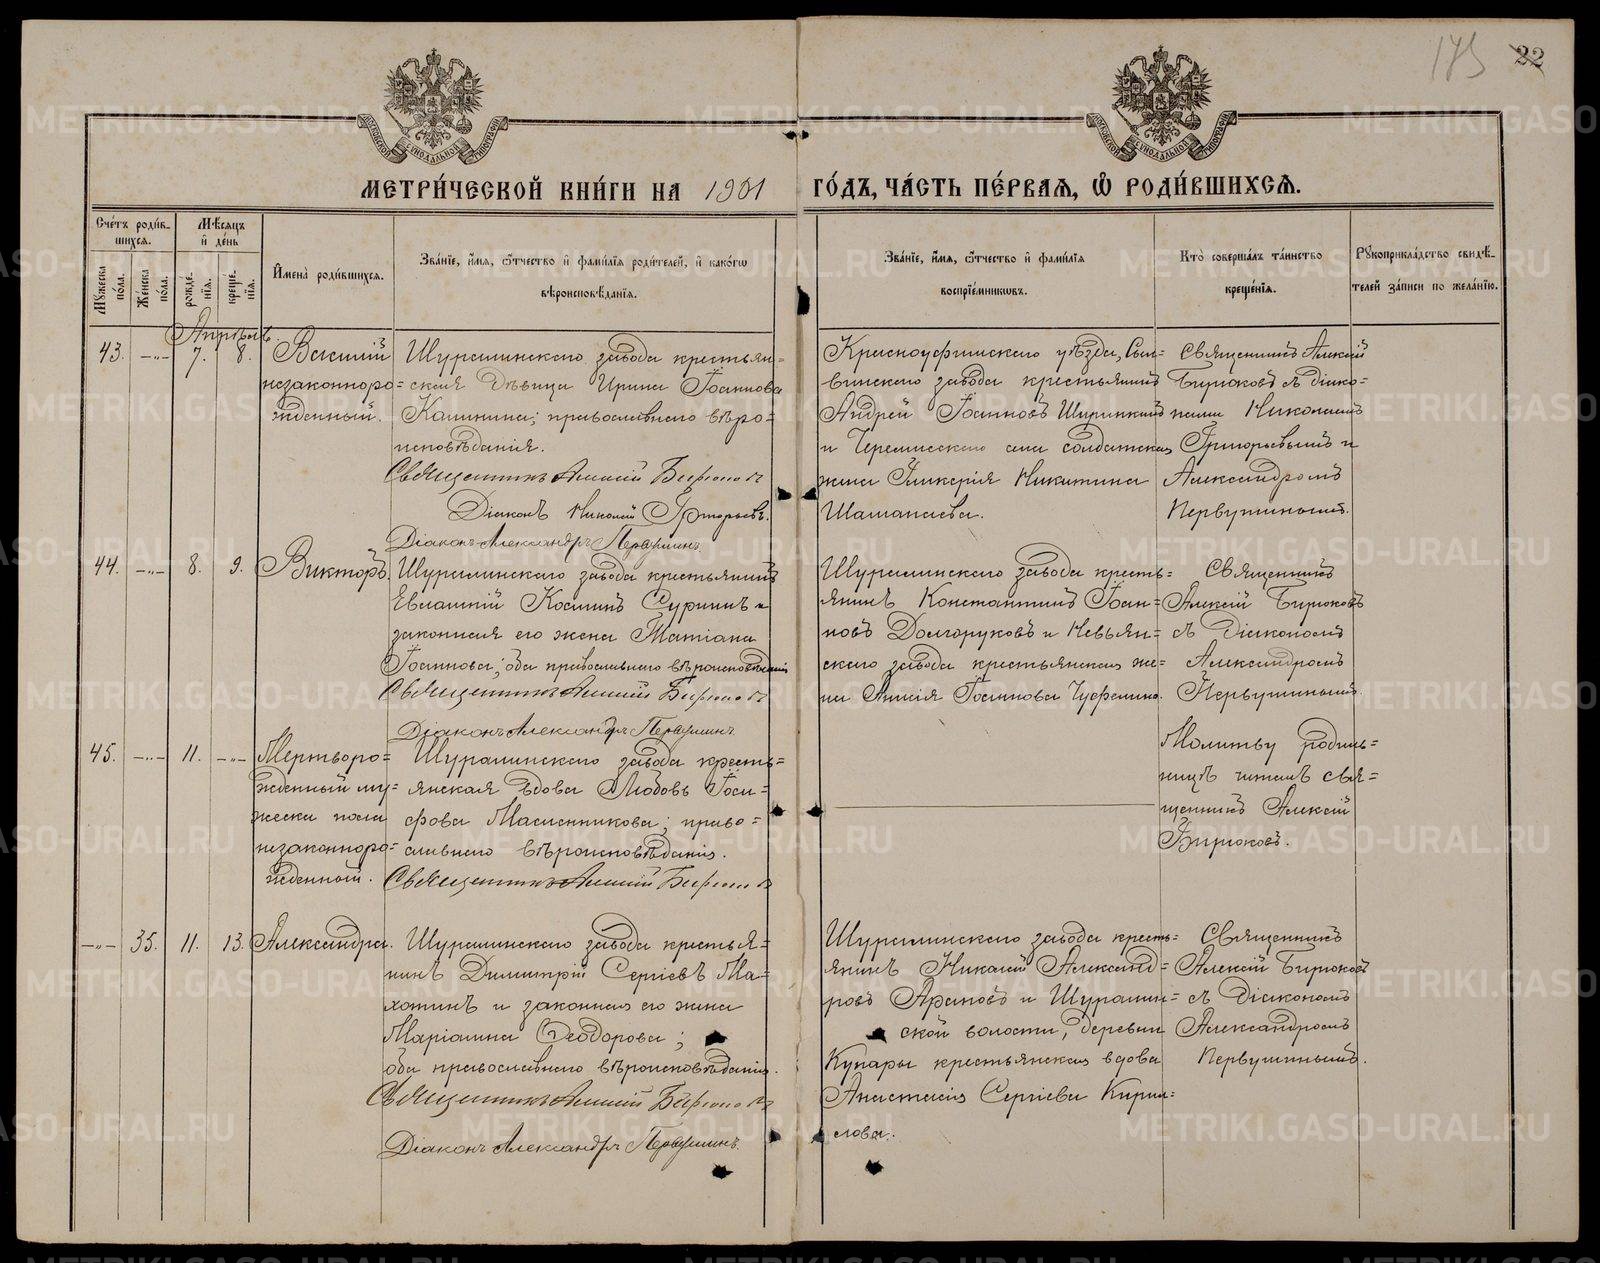 175 22
МЕТРИ́ЧЕСКОЙ КНИ́ГИ НА 1901 ГО́ДЪ, ЧА́СТЬ ПЕ́РВАѦ, Ѡ РОДИ́ВШИХСѦ.
Счетъ родив-
шихся.
Мужеска
пола.
Женска
пола.
Мѣсяцъ
и день
рожде-
нія.
креще-
нія.
Имена родившихся.
Званіе, имя, отчество и фамилія родителей, и какого
вѣроисповѣданія.
Званіе, имя, отчество и фамилія
воспріемниковъ.
Кто совершалъ таинство
крещенія.
Рукоприкладство свидѣ-
телей записи по желанію.
Апрѣль.
43. —"— 7. 8.
Василій
незаконноро=
жденный.
Шуралинскаго завода крестьян=
ская дѣвица Ирина Іоаннова
Калинина; православнаго вѣро=
исповѣданія.
Священникъ Алексій Бирюковъ
Діаконъ Николай Григорьевъ.
Діаконъ Александръ Первушинъ.
Красноуфимскаго уѣзда, Сы=
винскаго завода крестьянинъ
Андрей Іоанновъ
и Черемисскаго села солдатская
жена Гликерія Никитина
Священникъ Алексій
Бирюковъ съ діако=
нами Николаемъ
Григорьевымъ и
Александромъ
Первушинымъ.
44. —"— 8. 9.
Викторъ.
Шуралинскаго завода крестьянинъ
Евлампій Косминъ Суринъ и
законная его жена Татіана
Іоаннова; оба православнаго вѣроисповѣданія
Священникъ Алексій Бирюковъ
Діаконъ Александръ Первушинъ.
Шуралинскаго завода кресть=
янинъ Константинъ Іоан=
новъ Долгоруковъ и Невьян=
скаго завода крестьянская же=
на Анисія Іоаннова
Священникъ
Алексій Бирюковъ
съ діакономъ
Александромъ
Первушинымъ.
45. —"— 11. —"—
Мертворо=
жденный му=
жеска пола
незаконноро=
жденный.
Шуралинскаго завода кресть=
янская вдова Любовь Іоси=
фова Масленникова; право=
славнаго вѣроисповѣданія.
Священникъ Алексій Бирюковъ
Молитву родиль=
ницѣ читалъ свя=
щенникъ Алексій
Бирюковъ.
—"— 35. 11. 13.
Александра.
Шуралинскаго завода крестья=
нинъ Димитрій Сергіевъ Ма=
хотинъ и законная его жена
Маріамна Ѳеодорова;
оба православнаго вѣроисповѣданія.
Священникъ Алексій Бирюковъ
Діаконъ Александръ Первушинъ.
Шуралинскаго завода кресть=
янинъ Николай Александ=
ровъ Араповъ и Шуралин=
ской волости, деревни
Кунары крестьянская вдова
Анастасія Сергіева Кирил=
лова.
Священникъ
Алексій Бирюковъ
съ діакономъ
Александромъ
Первушинымъ.
METRIKI.GASO-URAL.RU